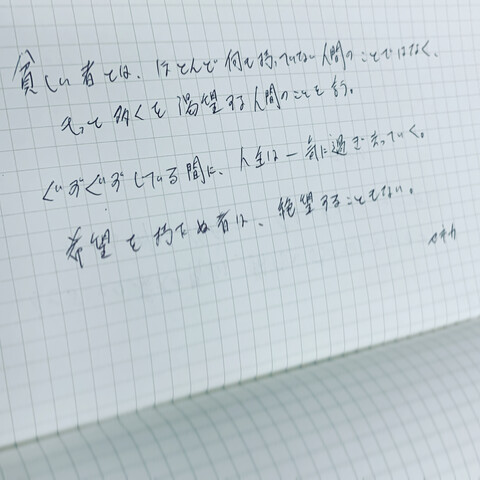 貧しい者とは、ほとんど何も持っていない人間のことではなく、
もっと多くを渇望する人間のことを言う。
ぐずぐずしている間に、人生は一気に過ぎ去っていく。
希望を持たぬ者は、絶望することもない。
セネカ